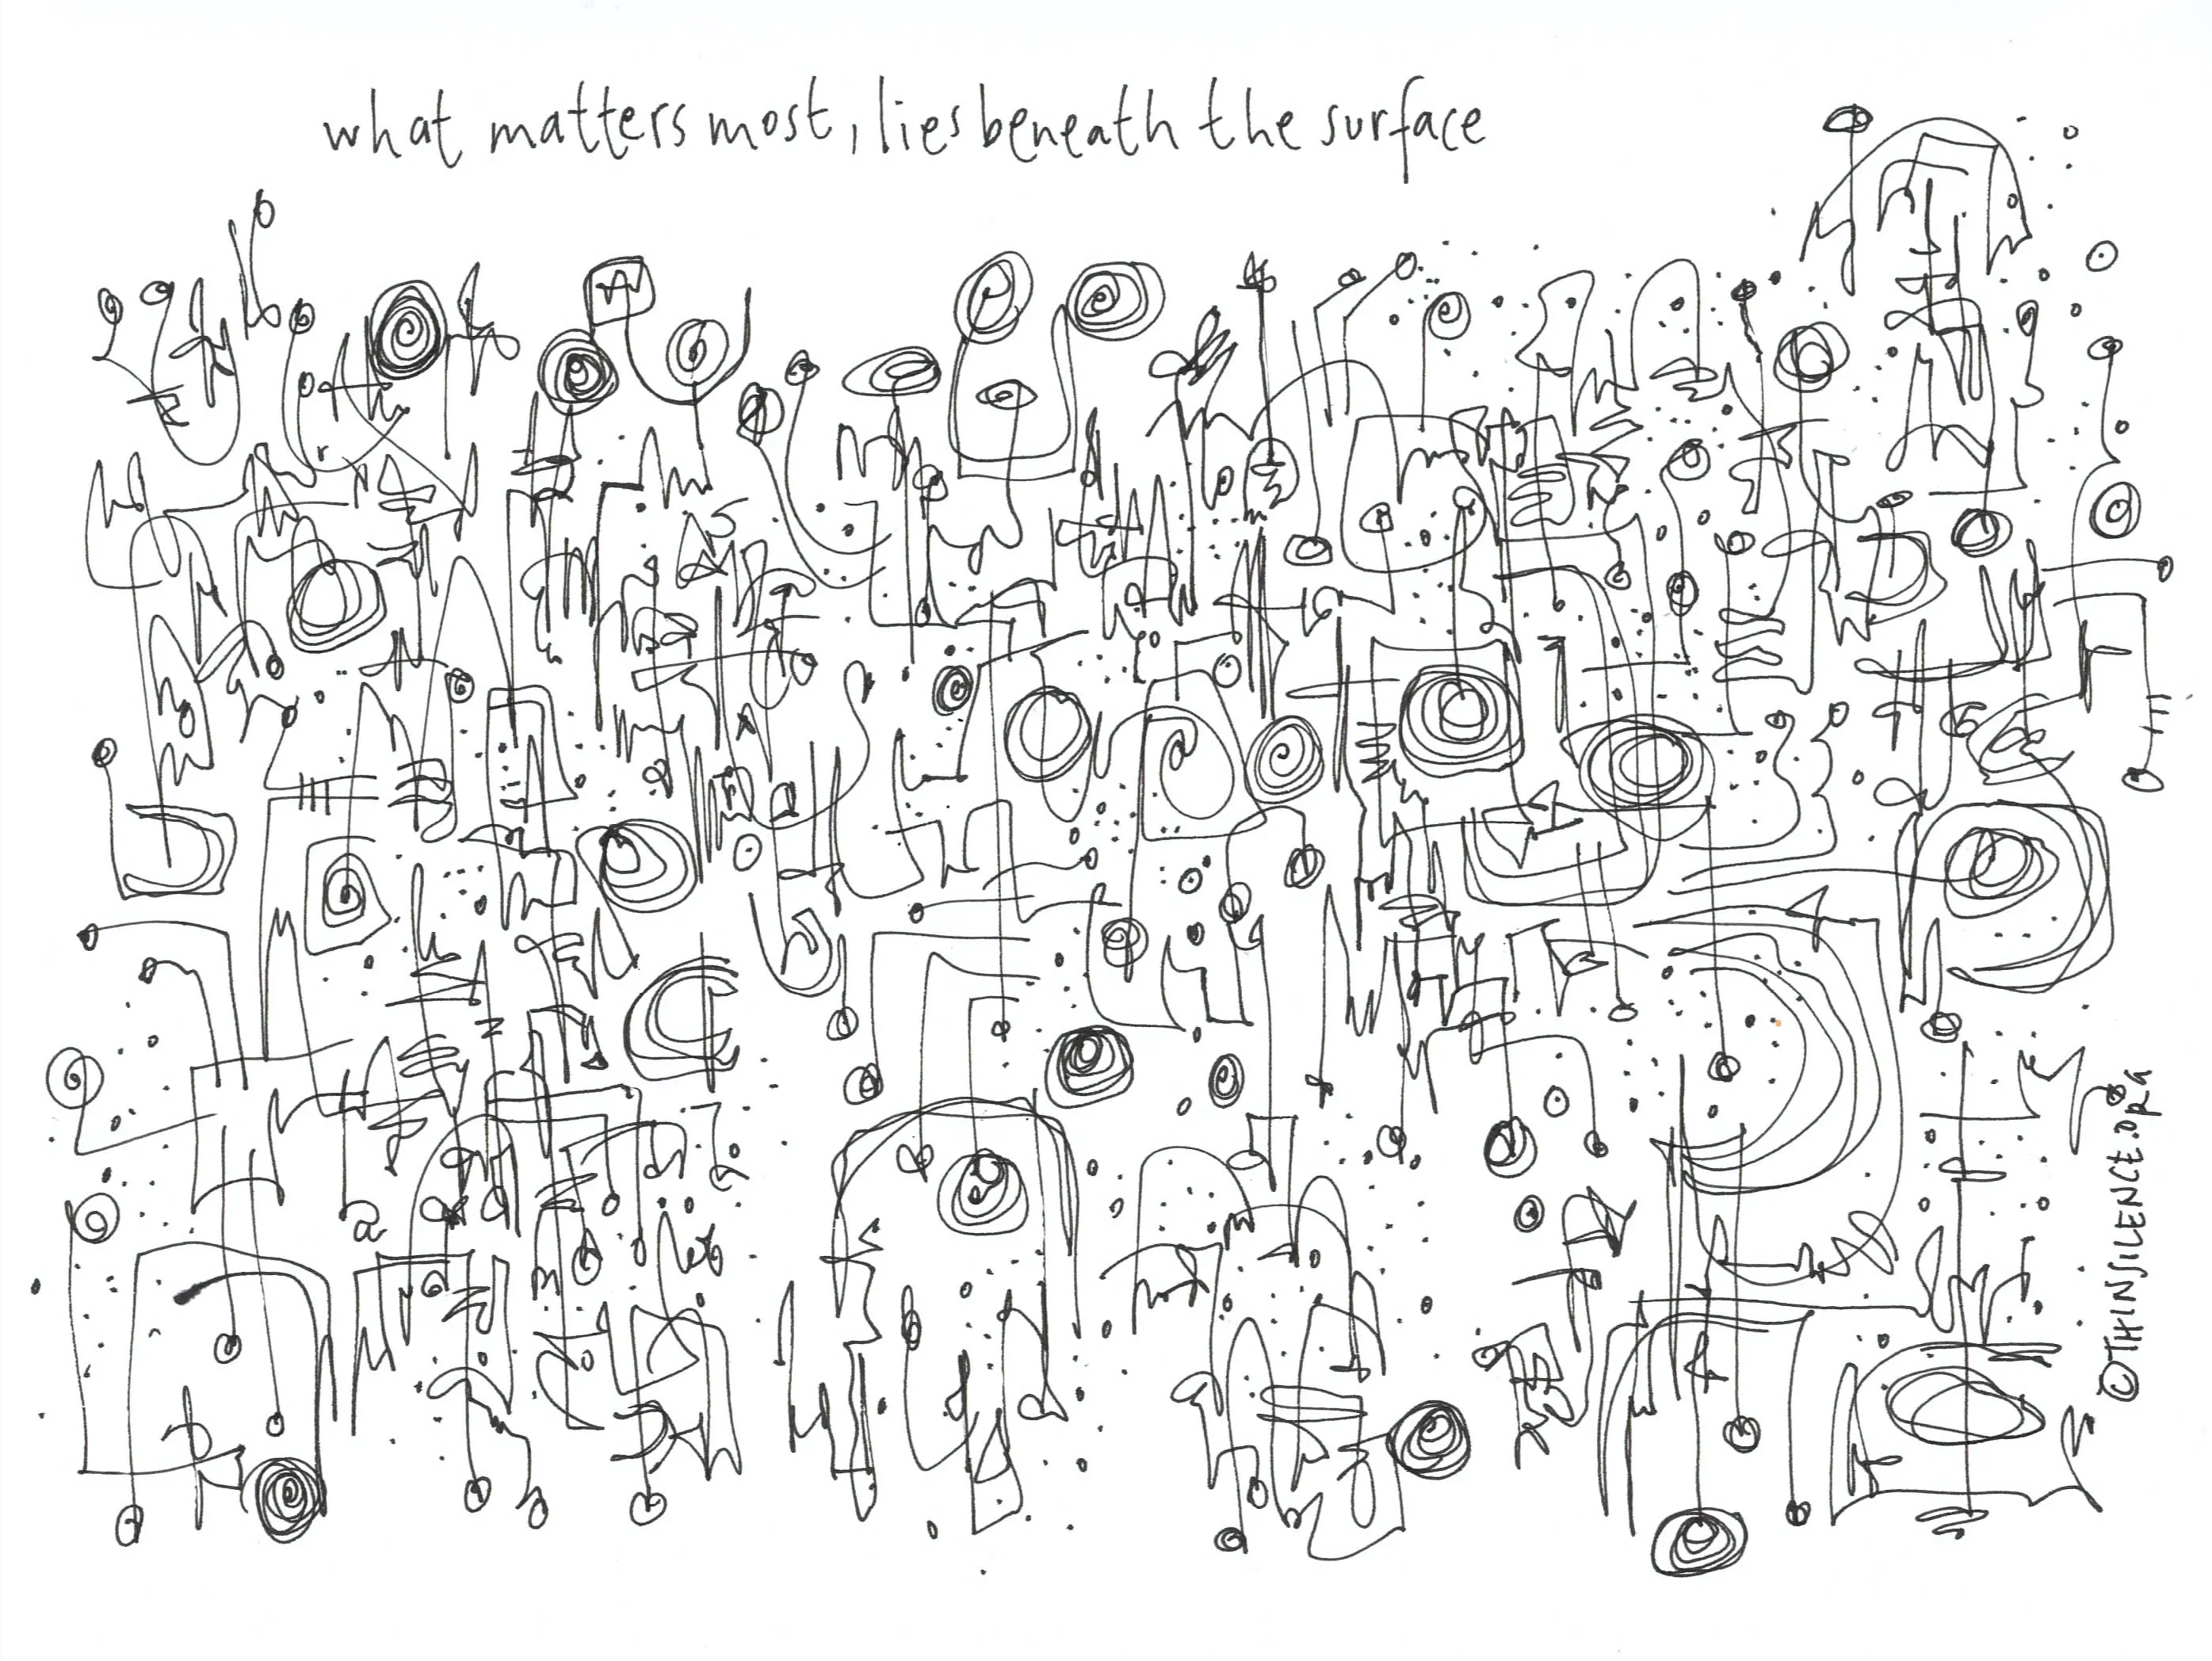 what matters most, lies beneath the surface
©THINSILENCE.ORG